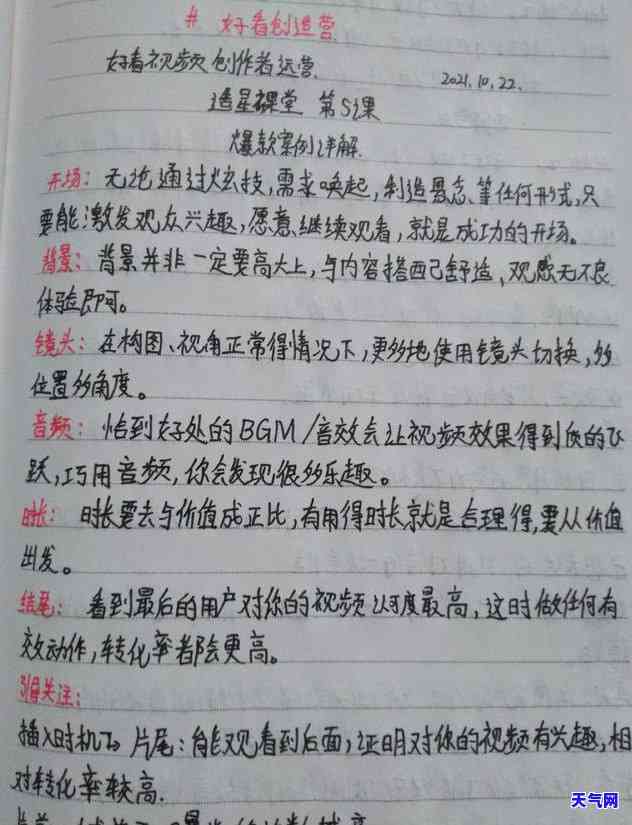 # 好看创造营
好看视频创作者运营
2021.10.22.
造星课堂 第5课
爆款案例详解.
开场: 无论通过炫技,需求唤起,制造悬念、等任何形式,只
要能激发观众兴趣,愿意继续观看,就是成功的开场。
背景: 背景并非一定要高大上,与内容搭配舒适,观感无不良
体验即可。
镜头: 在构图、视角正常得情况下,更多地使用镜头切换,多
位置多角度。
音频: 恰到好处的BGM/音效会让视频效果得到质的飞
跃,巧用音频,你会发现很多乐趣。
时长: 时长要去与价值成正比,有用得时长就是合理得,要从价值
出发。
结尾: 看到最后的用户对你的视频认可度最高,这时做任何有
效动作,转化率都会更高。
引自关注:
插入时机To 片尾:能观看到后面,证明对你的视频有兴趣,相
对转化率较高.
天气网